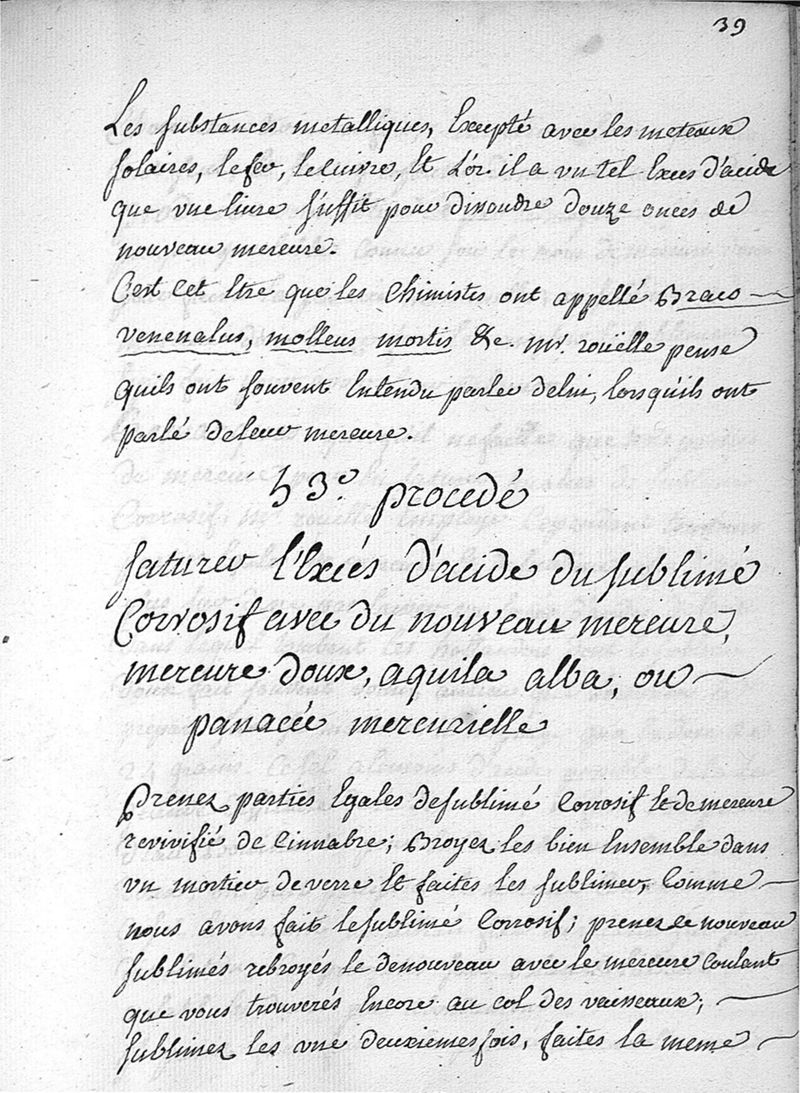 39
Les substances metalliques, Excepté avec les meteaux
solaires, le fer, le cuivre, Et L'or. il a vn tel Exces d'acide
que vne livre suffit pour dissoudre douze onces de
nouveau mercure.
C'est Cet Etre que les Chimistes ont appellé Draco
venenatus, molleus mortis &c. mr. rouëlle pense
quils ont souvent Entendu parler de lui, lorsquils ont
parlé de leur mercure.
53e. procedé
saturer l'Excés d'acide du sublimé
Corrosif avec du nouveau mercure,
mercure doux, aquila alba, ou
panacée mercurielle
Prenez parties Egales de sublimé Corrosif Et de mercure
revivifié de Cinnabre; Broyez les bien Ensemble dans
vn mortier de verre Et faites les sublimer, Comme
nous avons fait le sublimé Corrosif; prenez ce nouveau
sublimés rebroyés le denouveau avec le mercure Coulant
que vous trouverés Encore au col des vaisseaux;
sublimez les vne deuxiemes fois, faites la meme